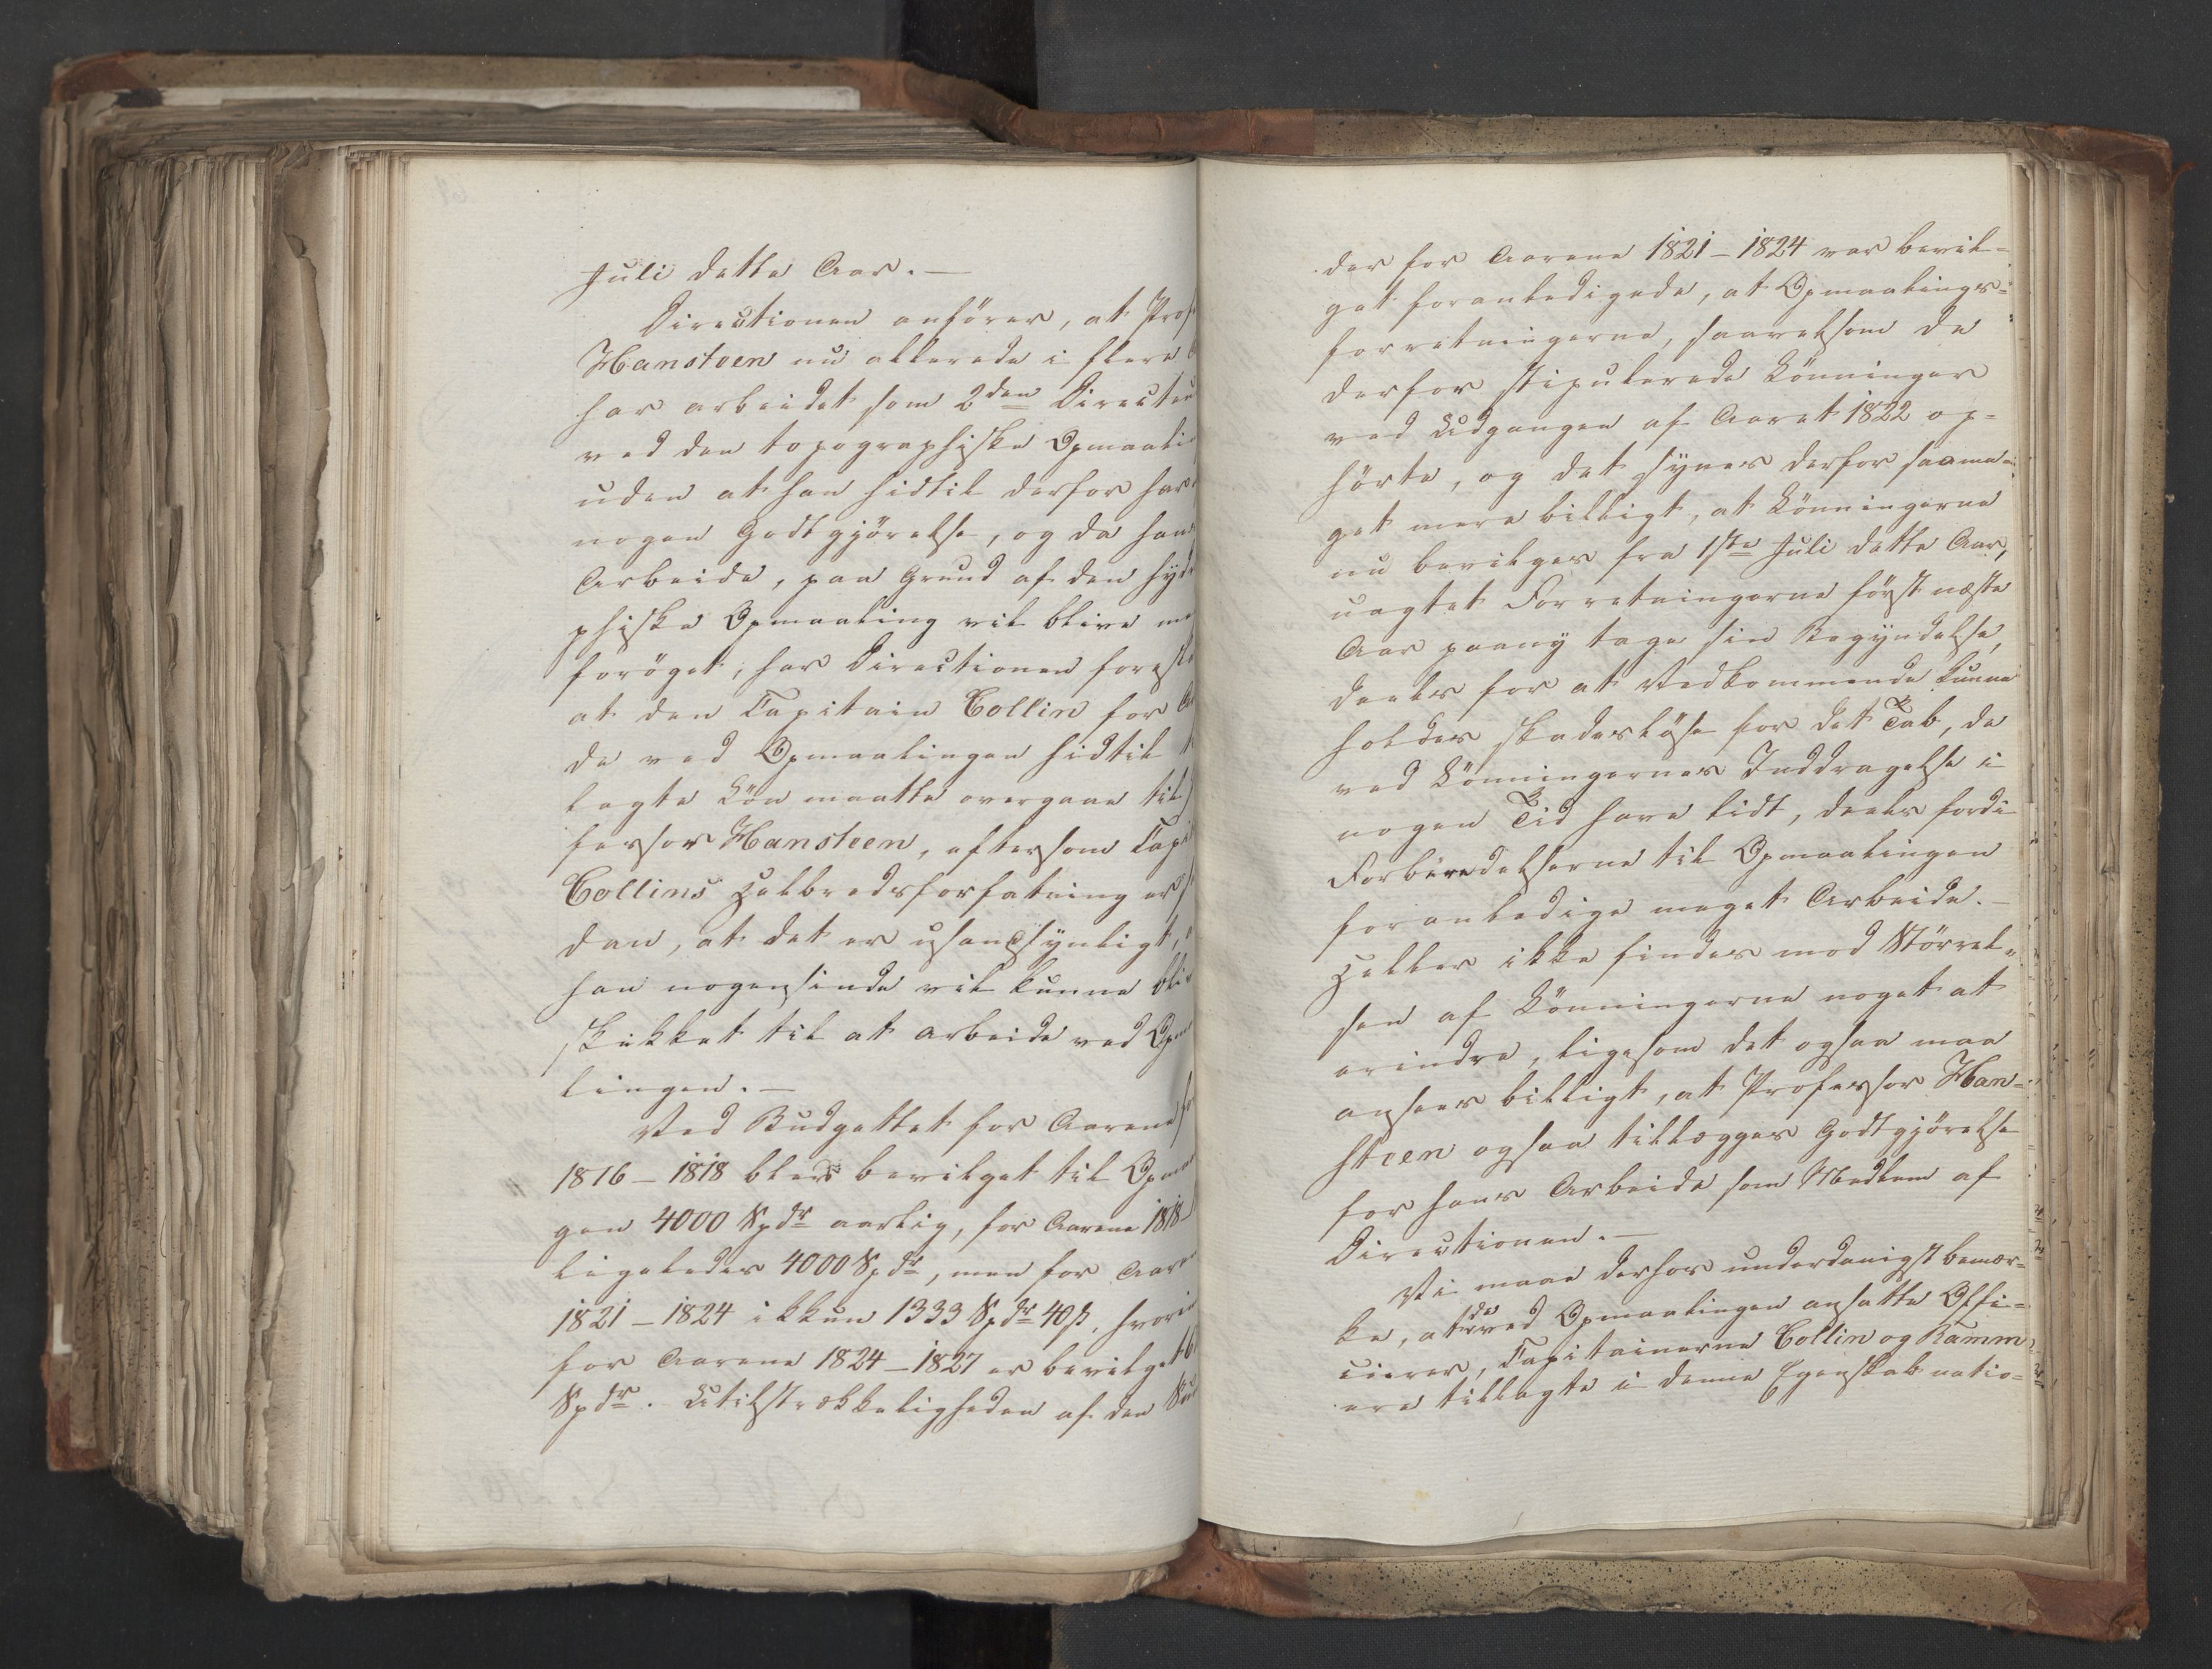 Juli dette Aar. —
Directionen anfører, at Prof
Hansteen nu allerede i flere
har arbeidet som 2den Directeu
ved den topographiske Opmaali
uden at han hidtil derfor har
nogen Godtgjørelse, og da han
Arbeide, paa Grund af den hyd
phiske Opmaaling vil blive me
forøget, har Directionen forest
at den Capitain Collin for
de ved Opmaalingen hidtil
lagte Løn maatte overgaae til
fessor Hansteen, eftersom Cap
Collins Helbredsforfatning er
dan, at det er usandsynligt,
han nogensinde vil kunne bli
skikket til at arbeide ved Opm
lingen. —
Ved Budgettet for Aarene
1816 – 1818 blev bevilget til Opm
gen 4000 Spdr aarlig, for Aarene 1818 –
ligeledes 4000 Spdr, men for Aare
1821 – 1824 ikkun 1333 Spdr 40 ß, hvori
for Aarene 1824 – 1827 er bevilget
Spdr. Utilstrækkeligheden af den
der for Aarene 1821 – 1824 var bevil=
get foranledigede, at Opmaalings=
forretningerne, saavelsom de
derfor stipulerede Lønninger
ved Udgangen af Aaret 1822 op=
hørte, og det synes derfor saame=
get mere billigt, at Lønningerne
nu bevilges fra 1ste Juli dette Aar,
uagtet Forretningerne først næste
Aar paany tage sin Begyndelse,
deels for at Vedkommende kunne
holdes skadesløse for det Tab, de
ved Lønningernes Inddragelse i
nogen Tid have lidt, deels fordi
Forberedelserne til Opmaalingen
foranledige meget Arbeide. —
Heller ikke findes mod Størrel=
sen af Lønningerne noget at
erindre, ligesom det ogsaa maa
ansees billigt, at Professor Han=
steen ogsaa tillægges Godtgjørelse
for hans Arbeide som Medlem af
Directionen. —
Vi maae derhos underdanigst bemær=
ke, at de ved Opmaalingen ansatte Offi=
cierer, Capitainerne Collin og Ramm
ere tillagte i denne Egenskab natio=